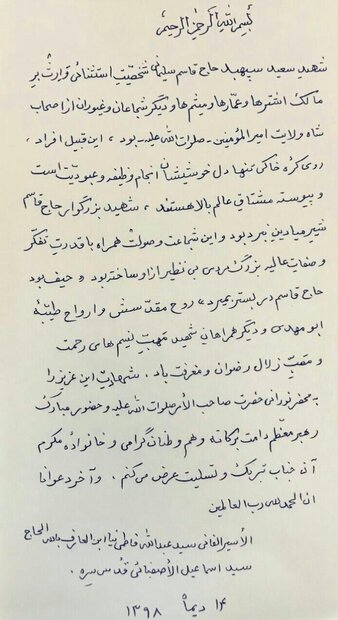 بسم الله الرحمن الرحیم
شهید سعید سپهبد حاج قاسم سلیمانی شخصیت استثنائی و ارث بر
مالک اشترها و عمارها و میثم ها و دیگر شجاعان و غیوران از اصحاب
شاه ولایت امیرالمؤمنین - صلوات الله علیه - بود ، این قبیل افراد ،
روی کره خاکی تنها دل خوشیشان انجام وظیفه و عبودیت است
و پیوسته مشتاق عالم بالا هستند ، شهید بزرگوار حاج قاسم
شیر میادین نبرد بود و این شجاعت و صولت همراه با قدرت تفکر
و صفات عالیه بزرگ مردی بی نظیر از او ساخته بود « حیف بود
حاج قاسم در بستر بمیرد » روح مقدسش و ارواح طیّبهٔ
ابو مهدی و دیگر همراهان شهید مهبّ نسیم های رحمت
و مصبّ زلال رضوان و مغفرت باد . شهادت این عزیز را
به محضر نورانی حضرت صاحب الأمر صلوات الله علیه و حضور مبارک
رهبر معظم دامت برکاته و هم وطنان گرامی و خانواده مکرم
آن جناب تبریک و تسلیت عرض می کنم . و آخر دعوانا
ان الحمد لله رب العالمین
الأسیر الفانی سید عبدالله فاطمی نیا ابن العارف بالله الحاج
سید اسماعیل الأصفیائی قدس سره .
۱۴ دیماه ۱۳۹۸